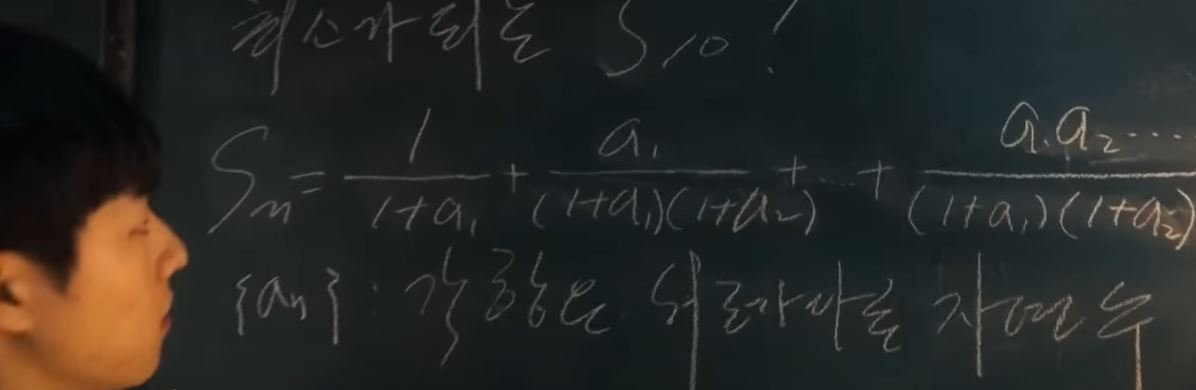 최소가 되는 S₁₀?
Sₙ = 1/(1+a₁) + a₁/((1+a₁)(1+a₂)) + … + a₁a₂…/((1+a₁)(1+a₂)
{aₙ} : 각 항은 서로 다른 자연수